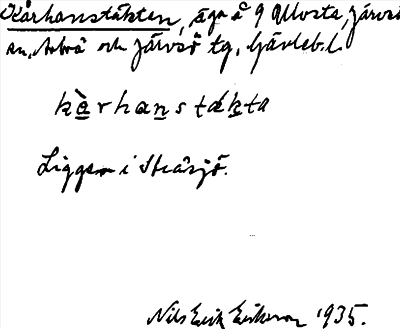 Kårhanstäkten, äga å 9 Ullvsta, Järvsö
sn, Arbrå och Järvsö tg, Gävleb.l
kàrhanstákta
Ligger i Stråsjö.
Nils Erik Eriksson 1935.